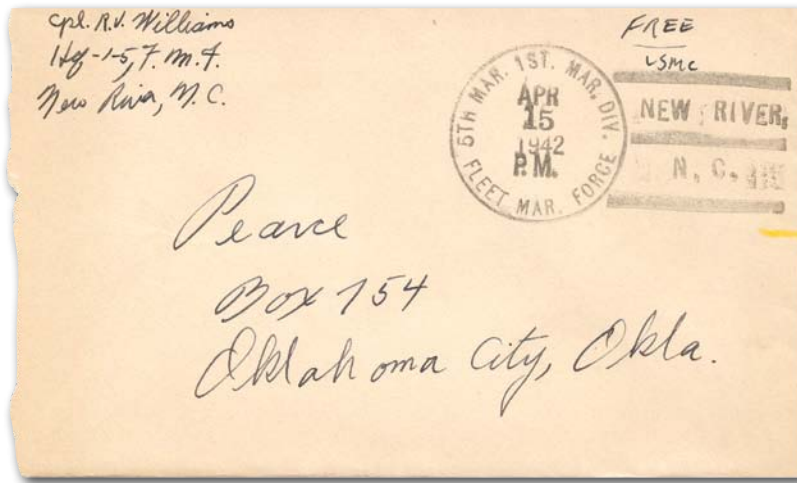 Cpl. R.V. Williams
Hq-1-5, F.M.F.
New River, N.C.
FREE
USMC
5TH MAR. 1ST. MAR. DIV.
APR
15
1942
P.M.
FLEET MAR. FORCE
NEW RIVER,
N. C.
Pearce
Box 754
Oklahoma City, Okla.